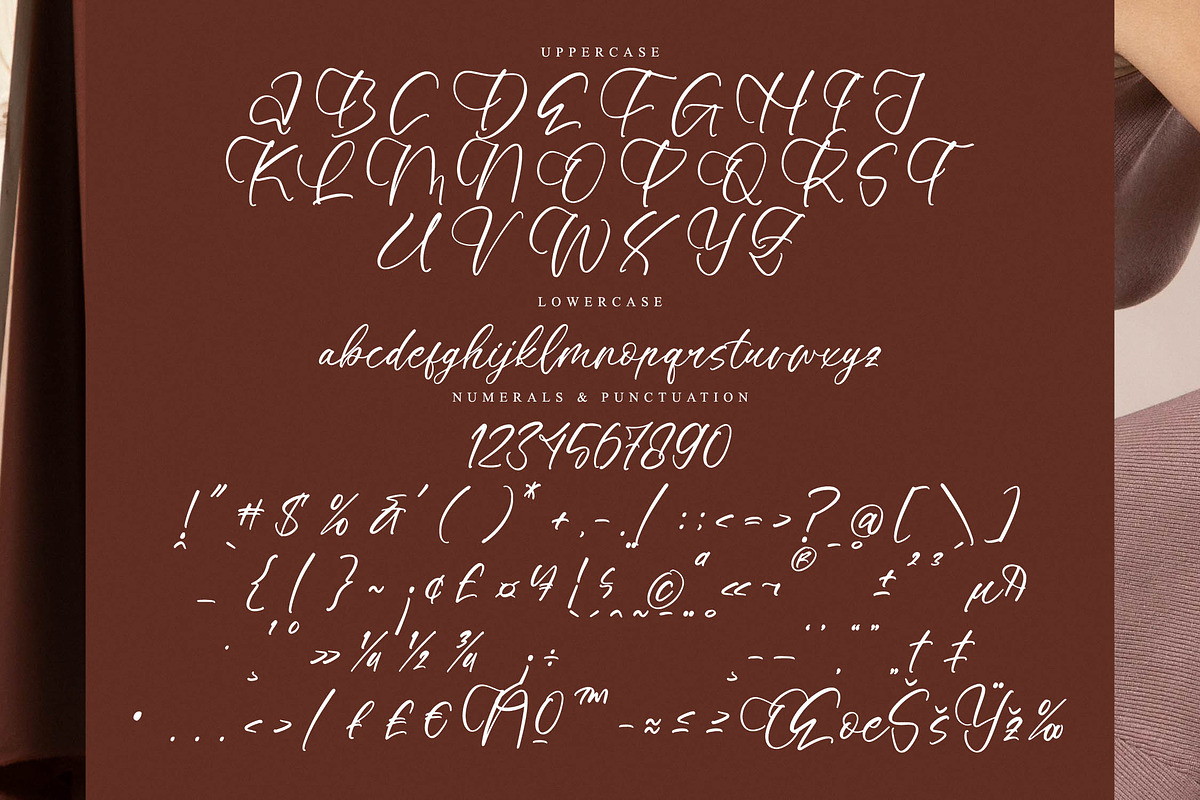 UPPERCASE
A B C D E F G H I J
K L M N O P Q R S T
U V W X Y Z
LOWERCASE
abcdefghijklmnopqrstuvwxyz
NUMERALS & PUNCTUATION
1234567890
! " # $ % & ' ( ) * + , - . / : ; < = > ? @ [ \ ]
^ _ ` { | } ~ ¡ ¢ £ ¤ ¥ ¦ § ¨ © ª « ¬ ® ¯ ° ± ² ³ ´ µ ¶
· ¸ ¹ º » ¼ ½ ¾ ¿ ÷ – — ‘ ’ ‚ “ ” „ † ‡
• … ‹ › ⁄ ₣ ₤ € Ω ™ − ≈ ≤ ≥ Œ œ Š š Ÿ ž ‰